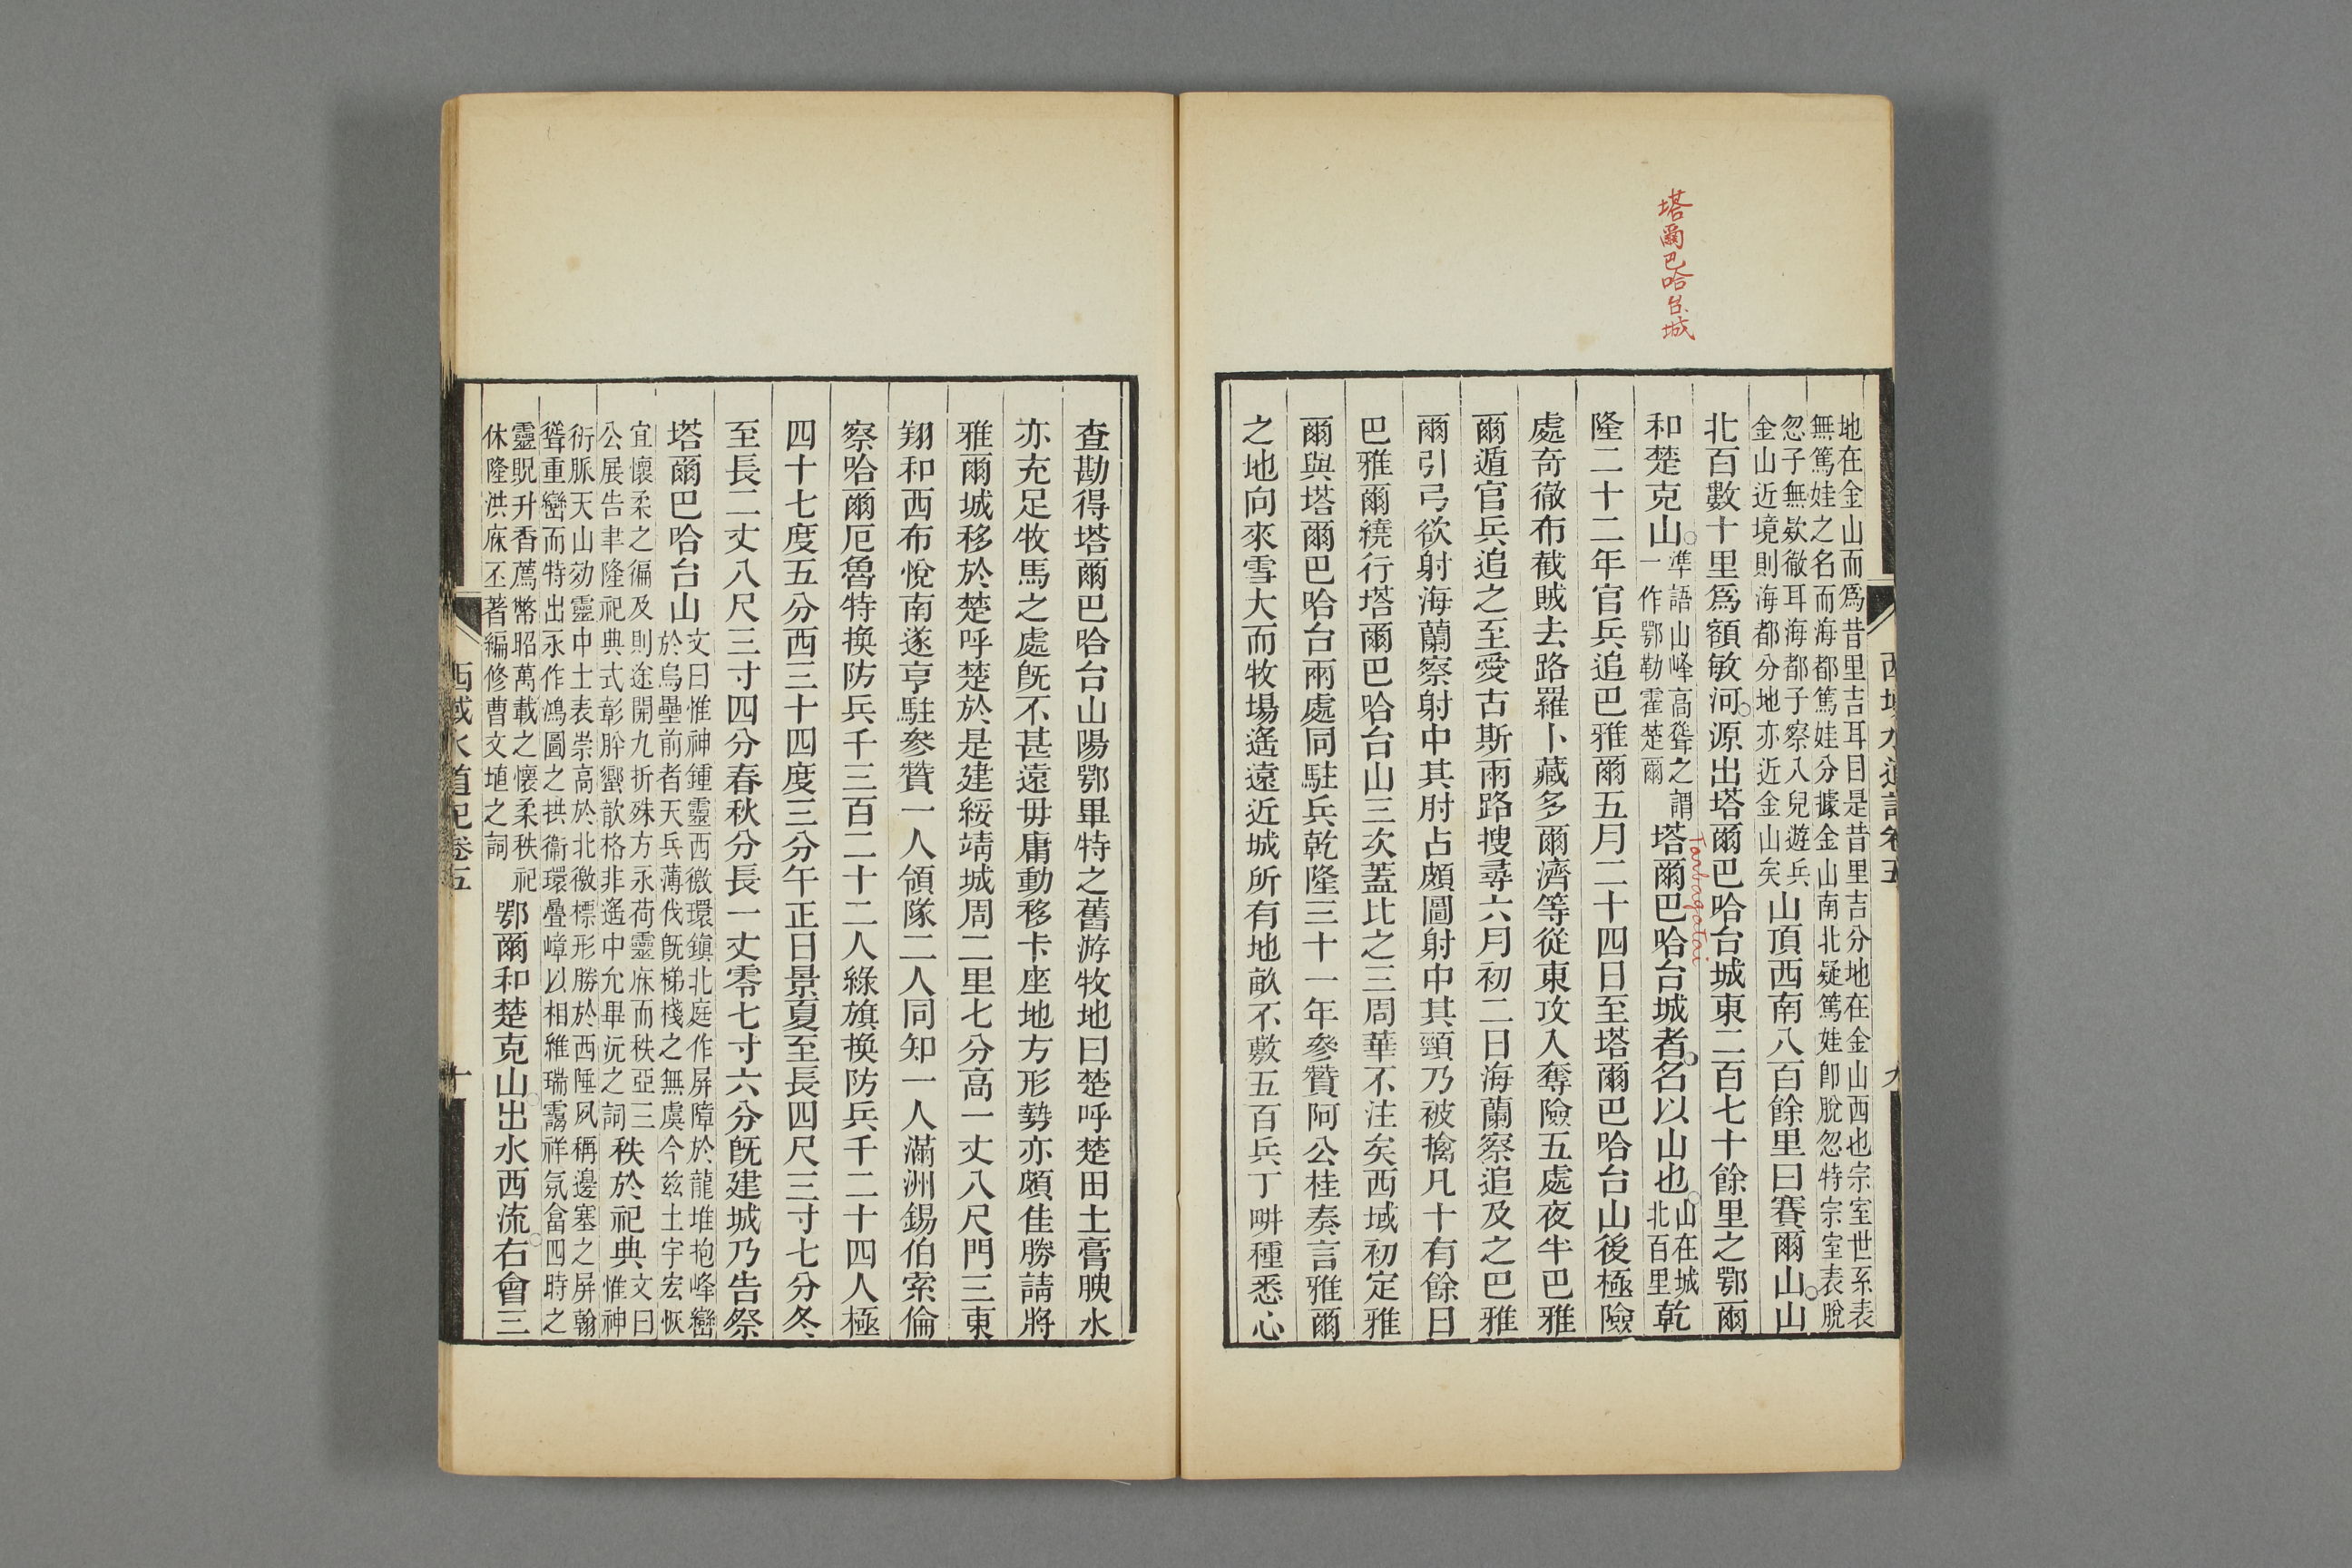 塔爾巴哈台城
西域水道記卷五
九
地在金山而爲昔里吉耳目是昔里吉分地在金山西也宗室世系表
無篤娃之名而海都篤娃分據金山南北疑篤娃卽脫忽特宗室表脫
忽子無欵徹耳海都子察入兒遊兵
金山近境則海都分地亦近金山矣
山頂西南八百餘里曰賽爾山山
北百數十里爲額敏河源出塔爾巴哈台城東二百七十餘里之鄂爾
和楚克山
準語山峰高聳之謂
一作鄂勒霍楚爾
塔爾巴哈台城者名以山也
山在城
北百里
乾
Tarbagatai
隆二十二年官兵追巴雅爾五月二十四日至塔爾巴哈台山後極險
處奇徹布截賊去路羅卜藏多爾濟等從東攻入奪險五處夜半巴雅
爾遁官兵追之至愛古斯兩路搜尋六月初二日海蘭察追及之巴雅
爾引弓欲射海蘭察射中其肘占頗圖射中其頸乃被擒凡十有餘日
巴雅爾繞行塔爾巴哈台山三次蓋比之三周華不注矣西域初定雅
爾與塔爾巴哈台兩處同駐兵乾隆三十一年參贊阿公桂奏言雅爾
之地向來雪大而牧場遙遠近城所有地畝不敷五百兵丁畊種悉心
查勘得塔爾巴哈台山陽鄂畢特之舊游牧地曰楚呼楚田土膏腴水
亦充足牧馬之處旣不甚遠毋庸動移卡座地方形勢亦頗佳勝請將
雅爾城移於楚呼楚於是建綏靖城周二里七分高一丈八尺門三東
翔和西布悅南遂亨駐參贊一人領隊二人同知一人滿洲錫伯索倫
察哈爾厄魯特換防兵千三百二十二人綠旗換防兵千二十四人極
四十七度五分西三十四度三分午正日景夏至長四尺三寸七分冬
至長二丈八尺三寸四分春秋分長一丈零七寸六分旣建城乃告祭
塔爾巴哈台山
文曰惟神鍾靈西徼環鎭北庭作屏障於龍堆抱峰巒
於烏壘前者天兵薄伐旣梯棧之無虞今玆土宇宏恢
宜懷柔之徧及則途開九折殊方永荷靈庥而秩亞三
公展告聿隆祀典式彰肸蠁歆格非遙中允畢沅之詞
秩於祀典
文曰
惟神
衍脈天山効靈中土表崇高於北徼標形勝於西陲夙稱邊塞之屏翰
聳重巒而特出永作鴻圖之拱衞環疊嶂以相雄瑞靄祥氛畣四時之
靈貺升香薦幣昭萬載之懷柔秩祀
休隆洪庥丕著編修曹文埴之詞
鄂爾和楚克山出水西流右會三
西域水道記卷五
十